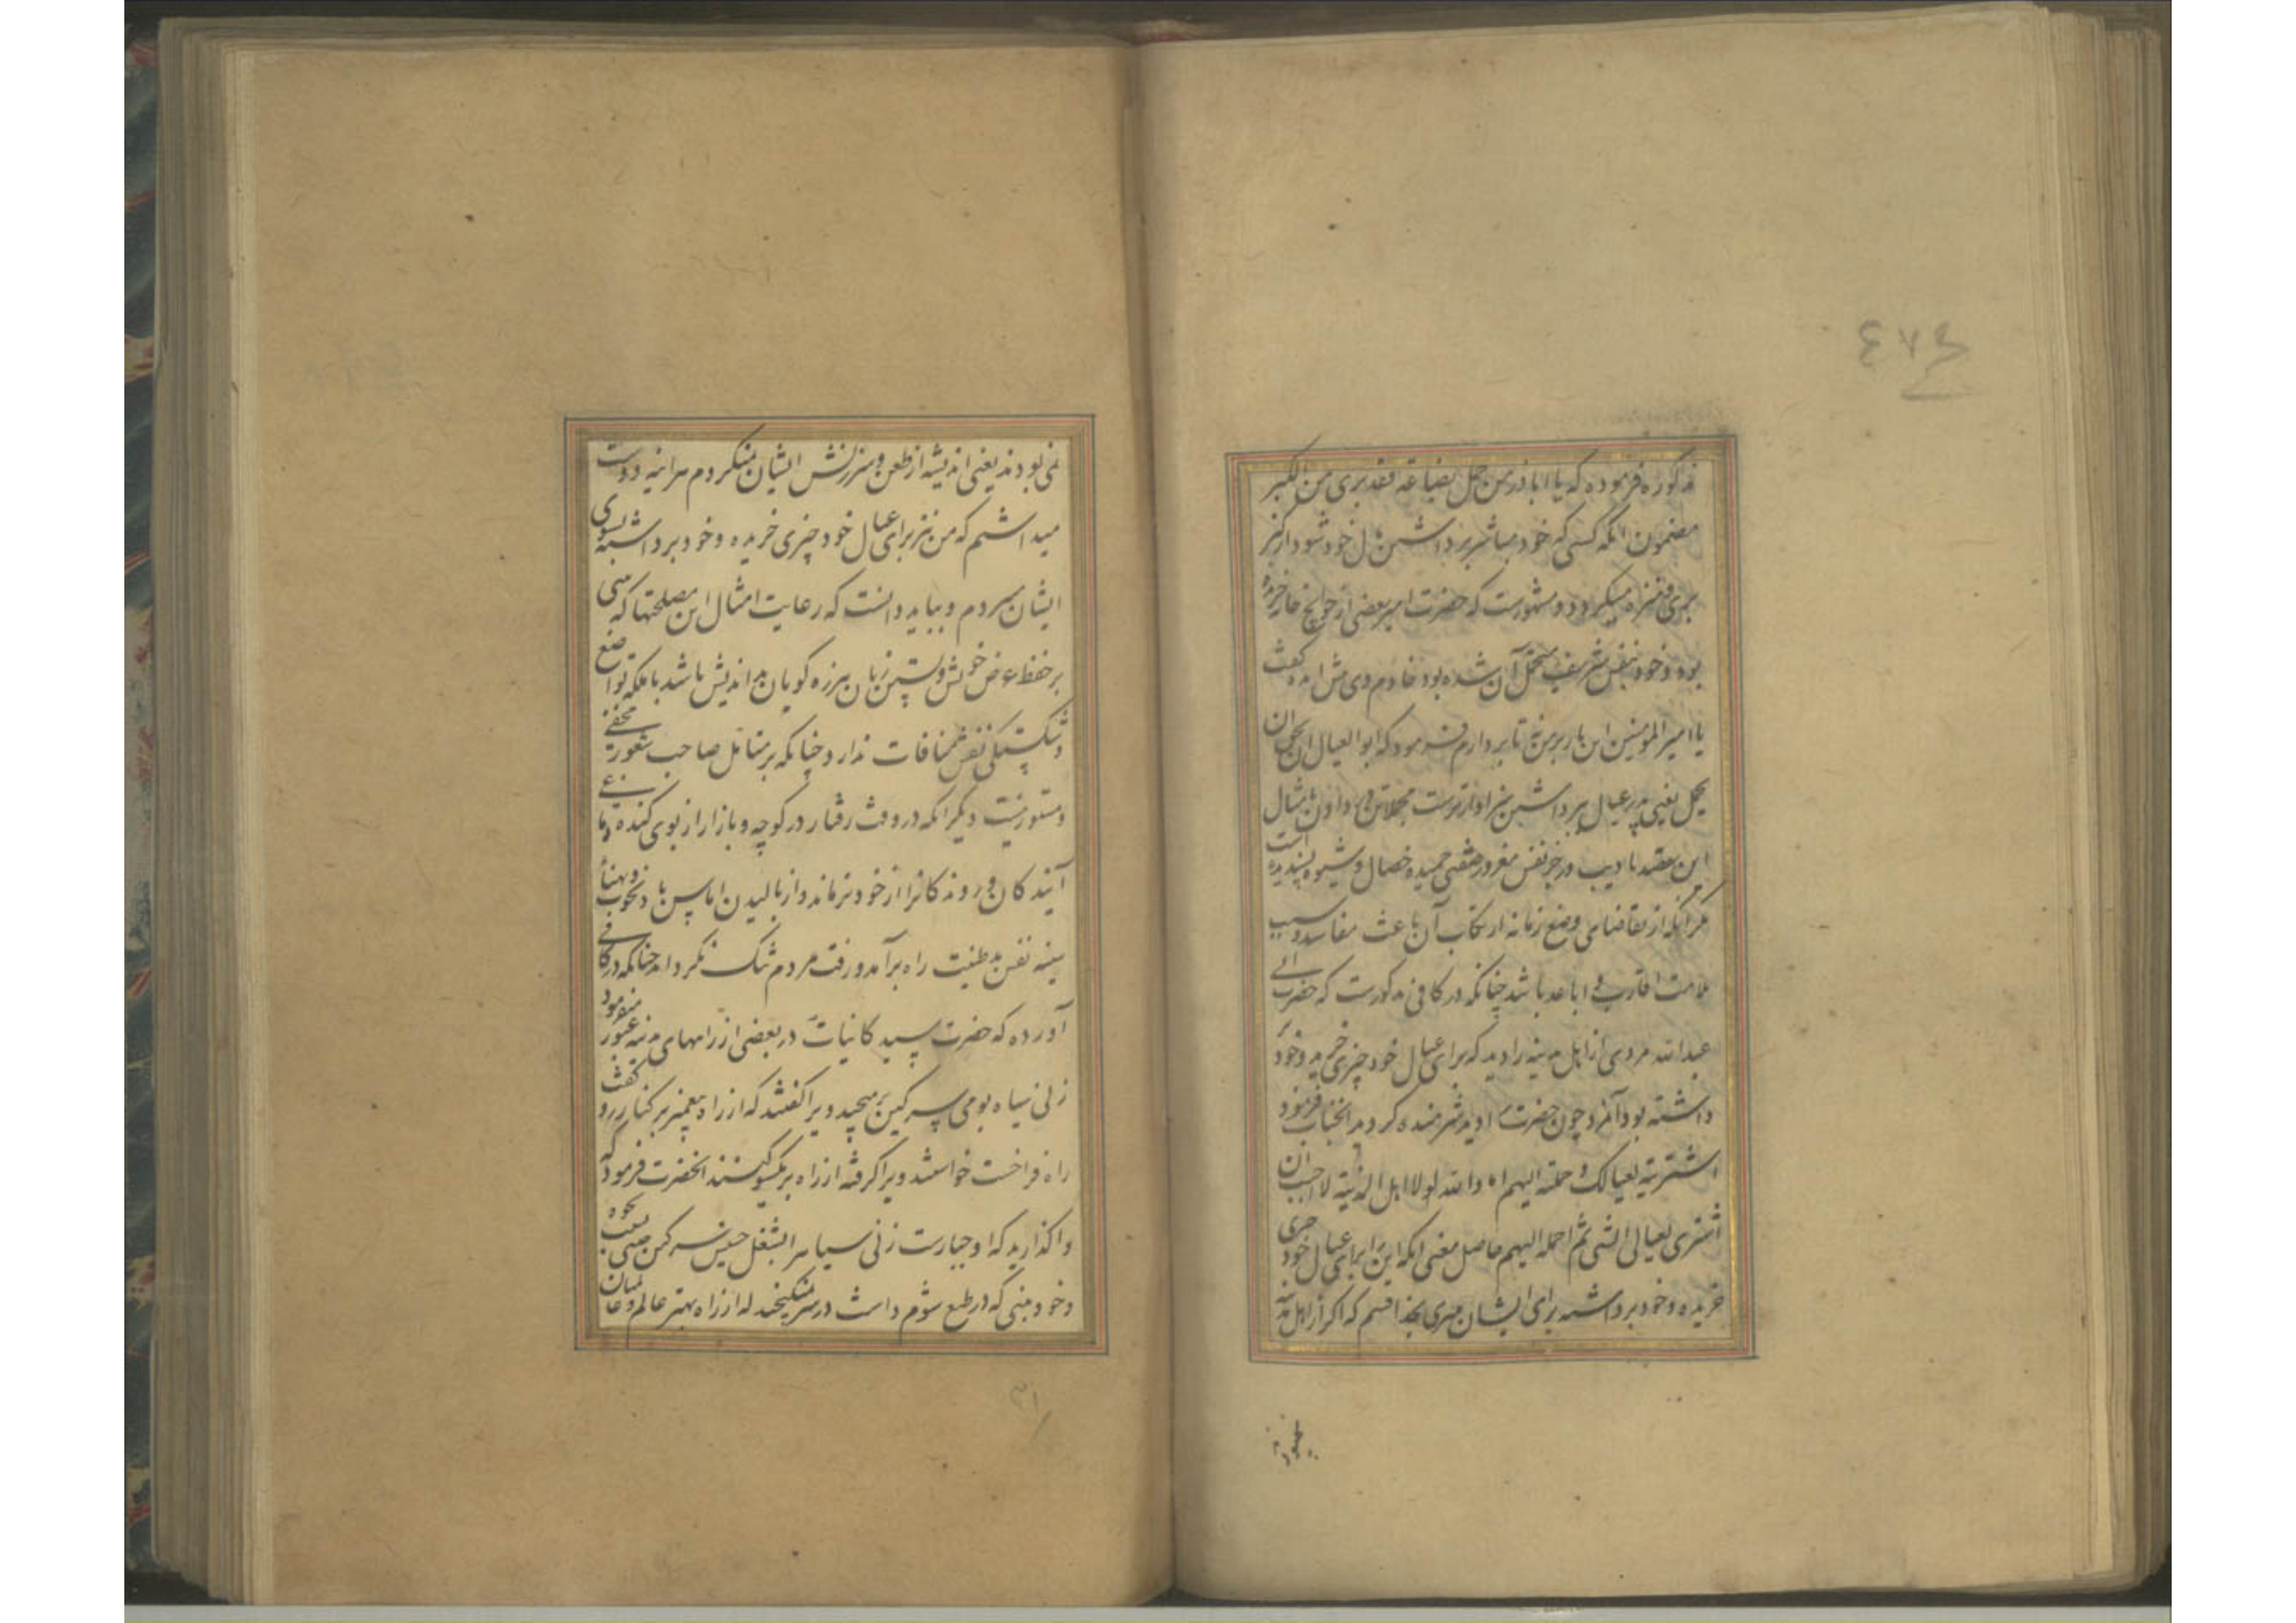 ٤٧٤
مذکوره فرموده که یا اباذر من حمل بضاعة فقد بری من الکبر
مضمون انکه کسی که خود مباشر برداشتن خود شود از کبر
بری و منزه میکردد و مشهورست که حضرت امیر بعضی از حوایج خانه خریده
بود و خود بنفس شریف متحمل آن شده بود خادم وی کفت
یا امیر المؤمنین این بار بر من نه تا بردارم فرمود که ابو العیال احق ان
یحمل یعنی پدر عیال ببرداشتن سزاوارترست مجملا تن در دادن بامثال
این تادیب و زجر نفس مغرور صفتی حمیده خصال و شیوه پسندیده است
مکر آنکه از تقاضای وضع زمانه ارتکاب آن باعث مفاسد و سبب
ملامت اقارب و اباعد باشد چنانکه در کافی مذکورست که حضرت ابی
عبدالله مردی از اهل مدینه را دید که برای عیال خود چیزی خریده و خود
برداشته بود آنمرد چون حضرت را دید شرمنده کردید انجناب فرمود
اشتریته لعیالک و حملته الیهم اما والله لولا اهل المدینة لاحببت ان
اشتری لعیالی الشی ثم احمله الیهم حاصل معنی انکه این را برای عیال خود
خریده و خود برداشته برای ایشان میبری بخدا قسم که اکر از اهل مدینه
نمی بودند یعنی اندیشه از طعن و سرزنش ایشان نمیکردم هراینه دوست
میداشتم که من نیز برای عیال خود چیزی خریده و خود برداشته بسوی
ایشان میبردم و بباید دانست که رعایت امثال این مصلحتها که مبنی
بر حفظ عرض خویش و بستن زبان هرزه کویان بد اندیش باشد با ملکه تواضع
و شکستکی نفس منافات ندارد چنانکه بر متامل صاحب شعور مخفی
و مستور نیست دیکر انکه در وقت رفتار در کوچه و بازار از بوی کنده دماغی
آیندکان و روندکانرا از خود نرماند و از بالیدن و
سینه نفس بد طینت راه برآمد و رفت مردم تنک نکرداند چنانکه در کافی
آورده که حضرت سید کاینات در بعضی از راههای مدینه عبور میفرمود
زنی سیاه بومی سرکین برمیچید ویرا کفتند که از راه پیغمبر بر کنار رو کفت
راه فراخست خواستند ویرا کرفته از راه بر یکسو کنند انحضرت فرمود که
واکذارید که او جبارست زنی سیاه را بشغل خسیس سرکین چینی نخوه
و خودبینی که در طبع شوم داشت از راه بهتر عالم و عالمیان
٣١